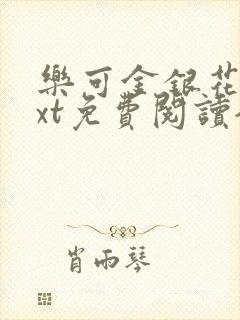 樂可金銀花
xt免費閱讀
肖雨琴